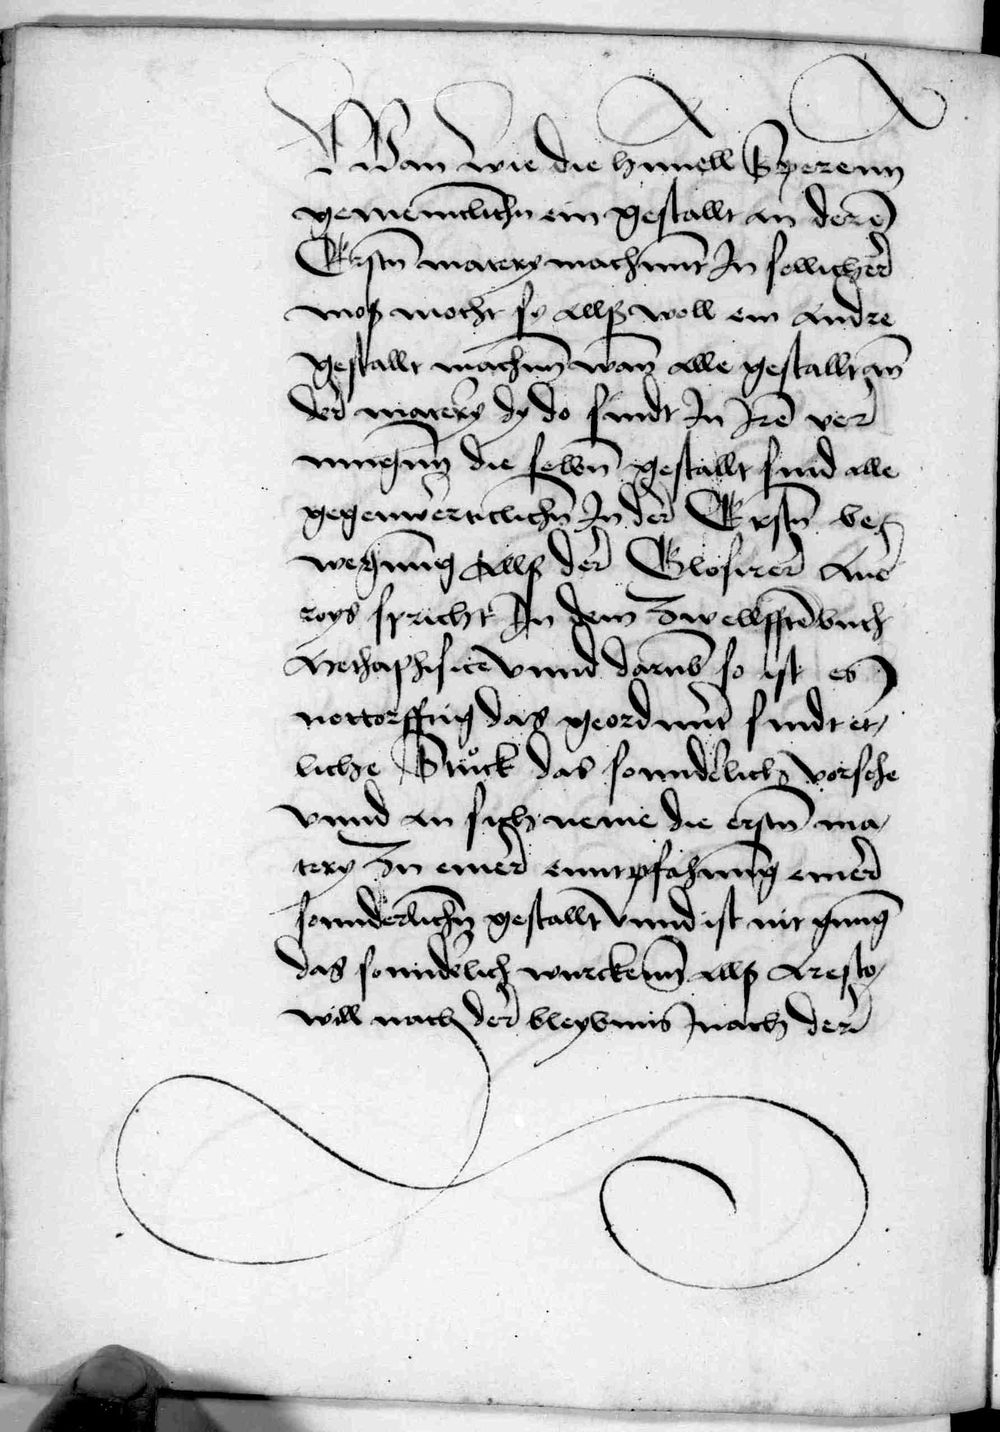 Wan wie die himell Sperenn
gemeincklichn ein gestallt an derē
Erstn matery machennt In sollicher
moß mocht sy allß woll ein andre
gestallt machnn wan̄ alle gestallt an̄
der matery dy do sindt In Irē ver
mugnn die selbn̄ gestallt sind alle
gegenwerticlichn̄ In der Erstn̄ be
wegnung Allß der Glosirer Aue
roys spricht In dem Zwellfftē buch
Methaphisice vnnd darub̄ so ist es
nottorfftig das geordnnt sindt et,
liche Stuck das sonnderlich vorsehe
vnnd an sich neme die erstn̄ ma,
tery Zu einer enntpfahung einer
sonnderlichn̄ gestallt vnnd ist nit gnug
das sonnderlich wurckenn allß Aresto,
will nach der bleybnus nach der